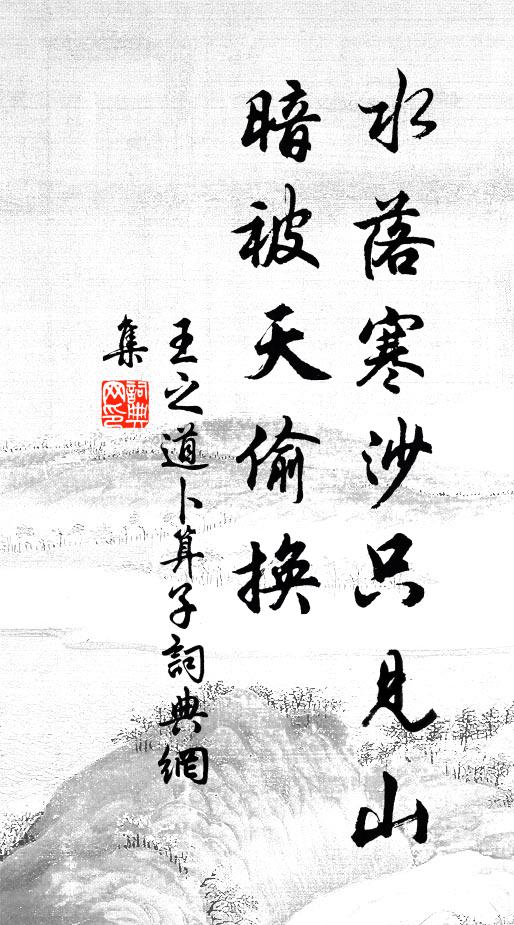 水落寒沙只見山
暗被天偷換
王之道卜算子詞典網
集
詞典網印